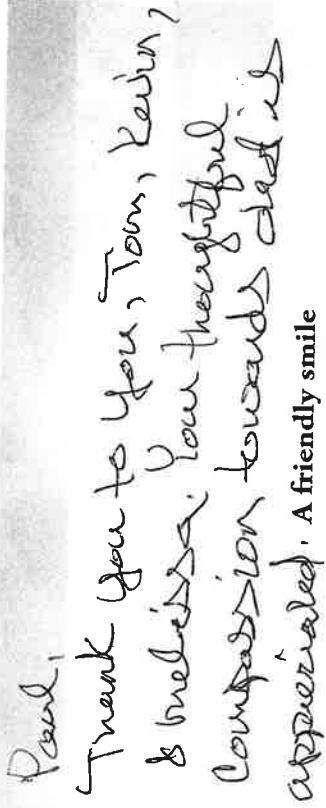 Paul,
Thank you to you, Tom, Kevin,
& melissa. Your thoughtful
Compassion towards dad is
appreciated. A friendly smile